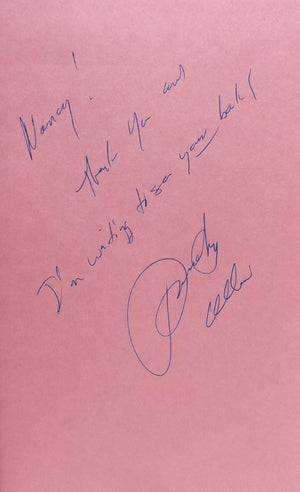 Nancy!
Thank You and
I'm waiting to see your book!
Dorothy Allison